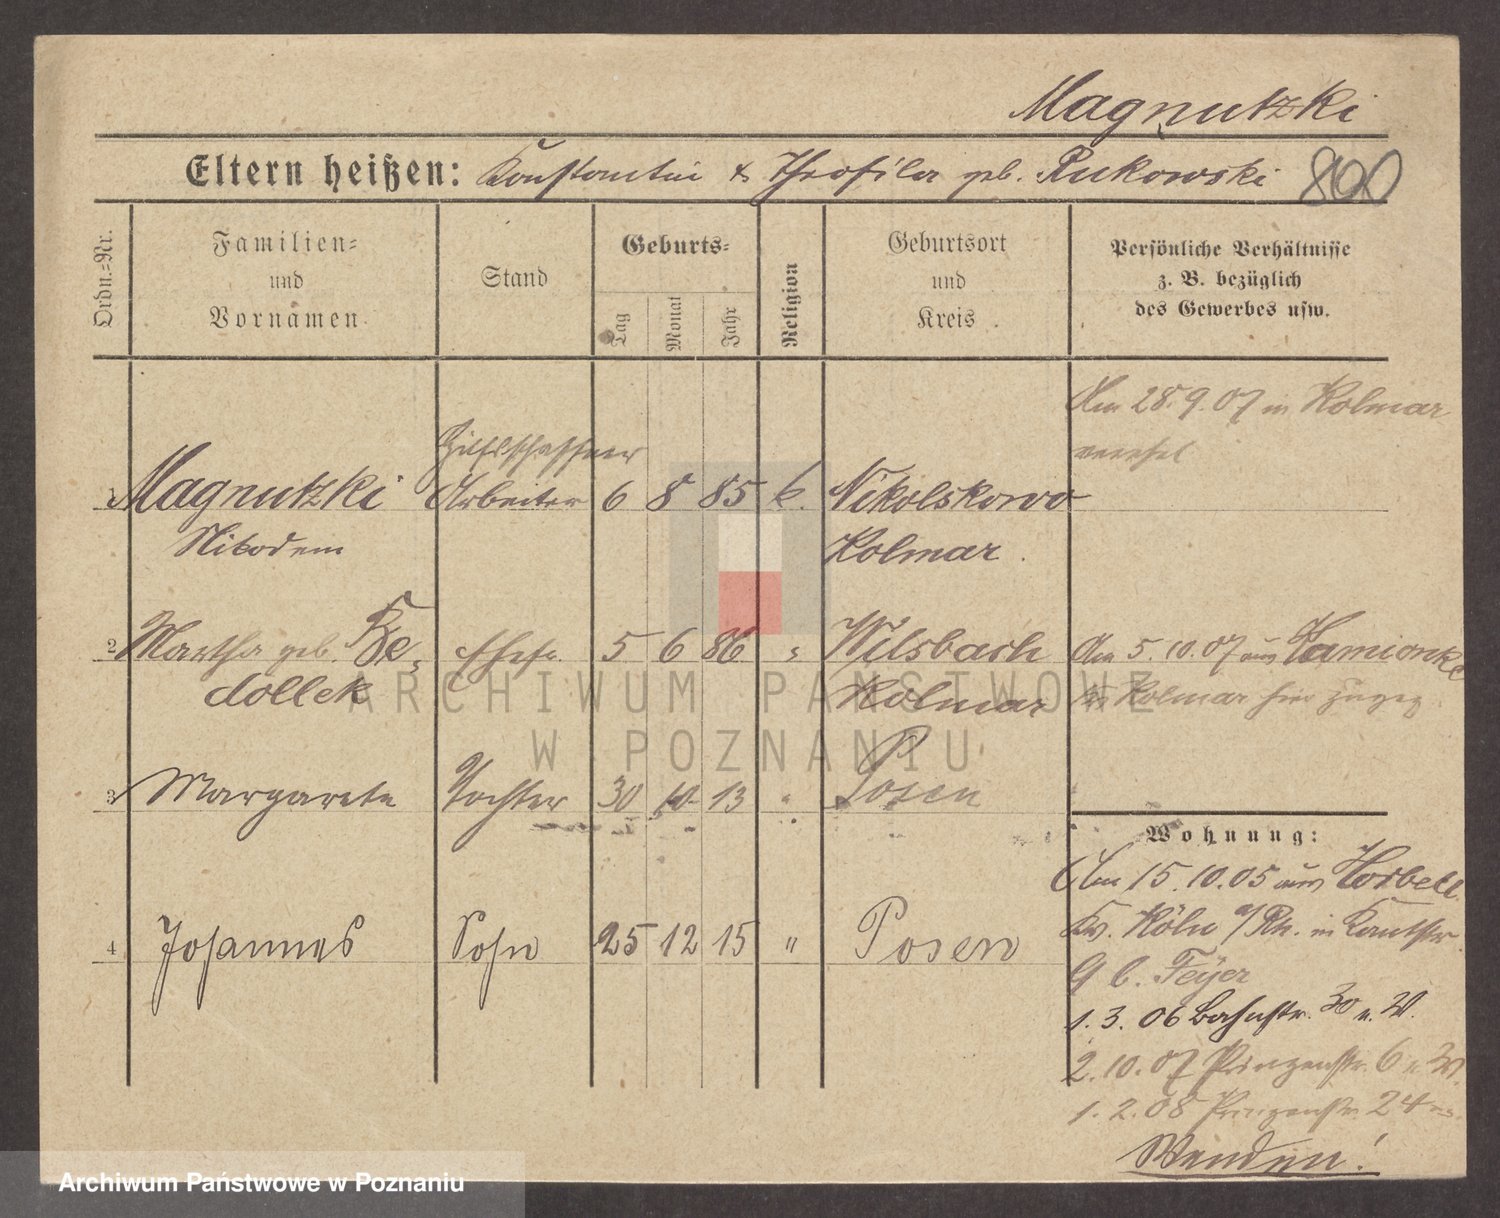 Magnutzki
Eltern heißen: Konstantin & Theofila geb. Rukowski 800
Ordn.-Nr.
Familien- und Vornamen
Stand
Geburts-
Tag Monat Jahr
Religion
Geburtsort und Kreis
Persönliche Verhältnisse
z. B. bezüglich
des Gewerbes usw.
Am 28.9.07 in Kolmar
Hilfsschaffner
1 Magnutzki Arbeiter 6 8 85 k. Nikolskowo
Nikodem Kolmar.
2 Martha geb. Ke- Ehefr. 5 6 86 " Wilsbach Am 5.10.07 aus Kamionke
dollek Kolmar Kr. Kolmar hier zugez.
3 Margarete Tochter 30 10 13 " Posen
Wohnung:
Am 15.10.05 aus Horbell
Kr. Köln a/Rh. in Kantstr.
9 b. Feyer
4 Johannes Sohn 25 12 15 " Posen
1.3.06 Bahnstr. 30 n. W.
2.10.07 Prinzenstr. 6 n. W.
1.2.08 Prinzenstr. 24
Wenden!
ARCHIWUM PAŃSTWOWE
W POZNANIU
Archiwum Państwowe w Poznaniu